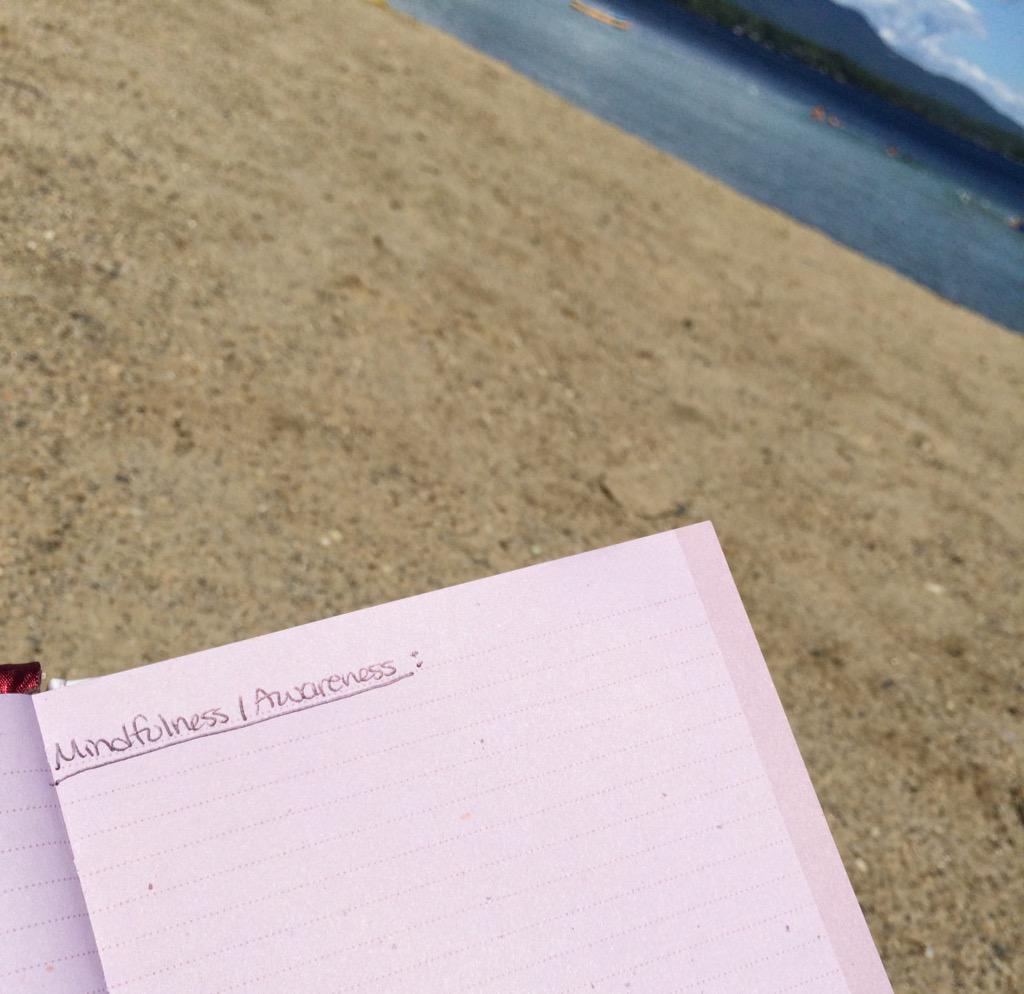 Mindfulness / Awareness :